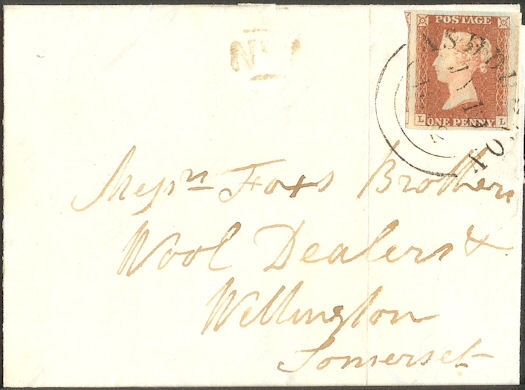 No 1
POSTAGE
ONE PENNY
L L
Messrs Foxs Brothers
Wool Dealers &
Wellington
Somerset